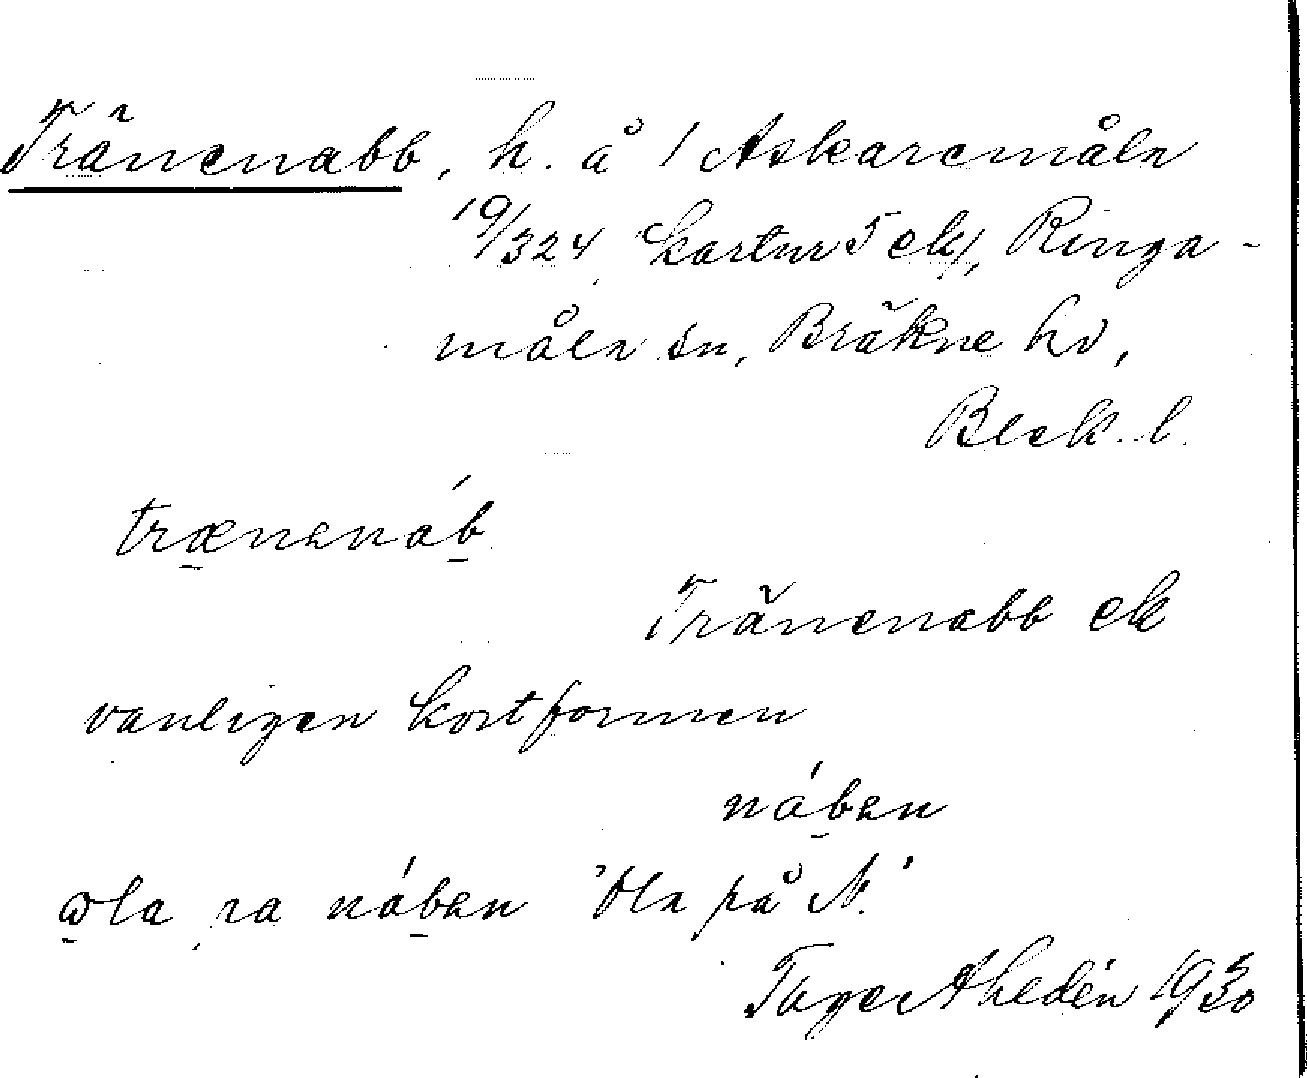 Tränenabb, h. å 1 Askaremåla
19/324 kartur 5 ek/, Ringa-
måla sn, Bräkne hd,
Blek. l.
trænenáb
Tränenabb ek
vanligen kortformen
náben
ola pa náben 'Ola på N.'
Tage Ahldén 1930